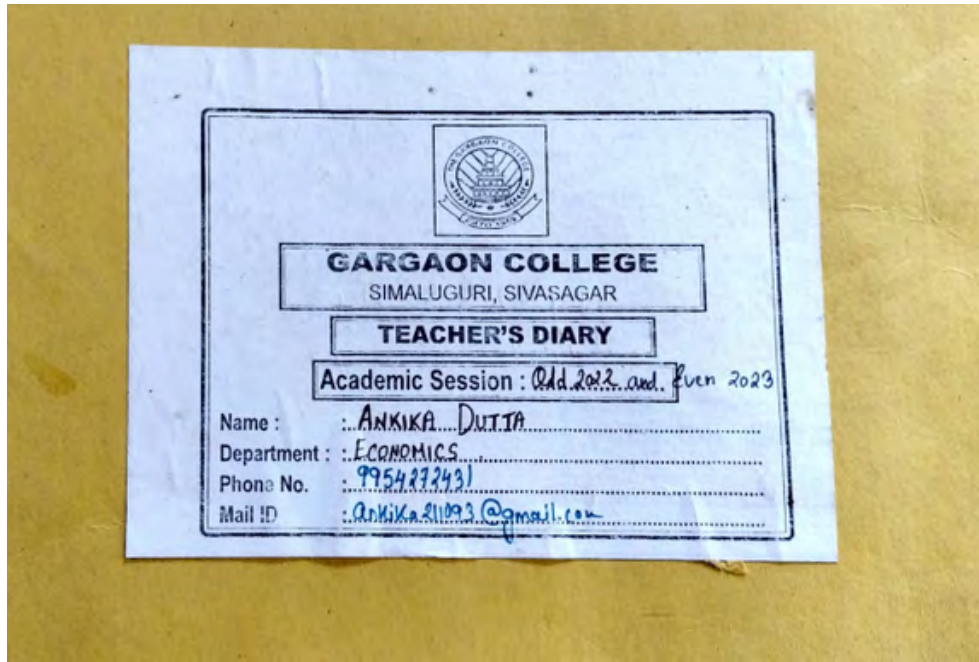 THE GARGAON COLLEGE
GARGAON COLLEGE
SIMALUGURI, SIVASAGAR
TEACHER'S DIARY
Academic Session : Odd 2022 and Even 2023
Name : : ANKIKA DUTTA
Department : : ECONOMICS
Phone No. : 9954272431
Mail ID : ankika211093@gmail.com